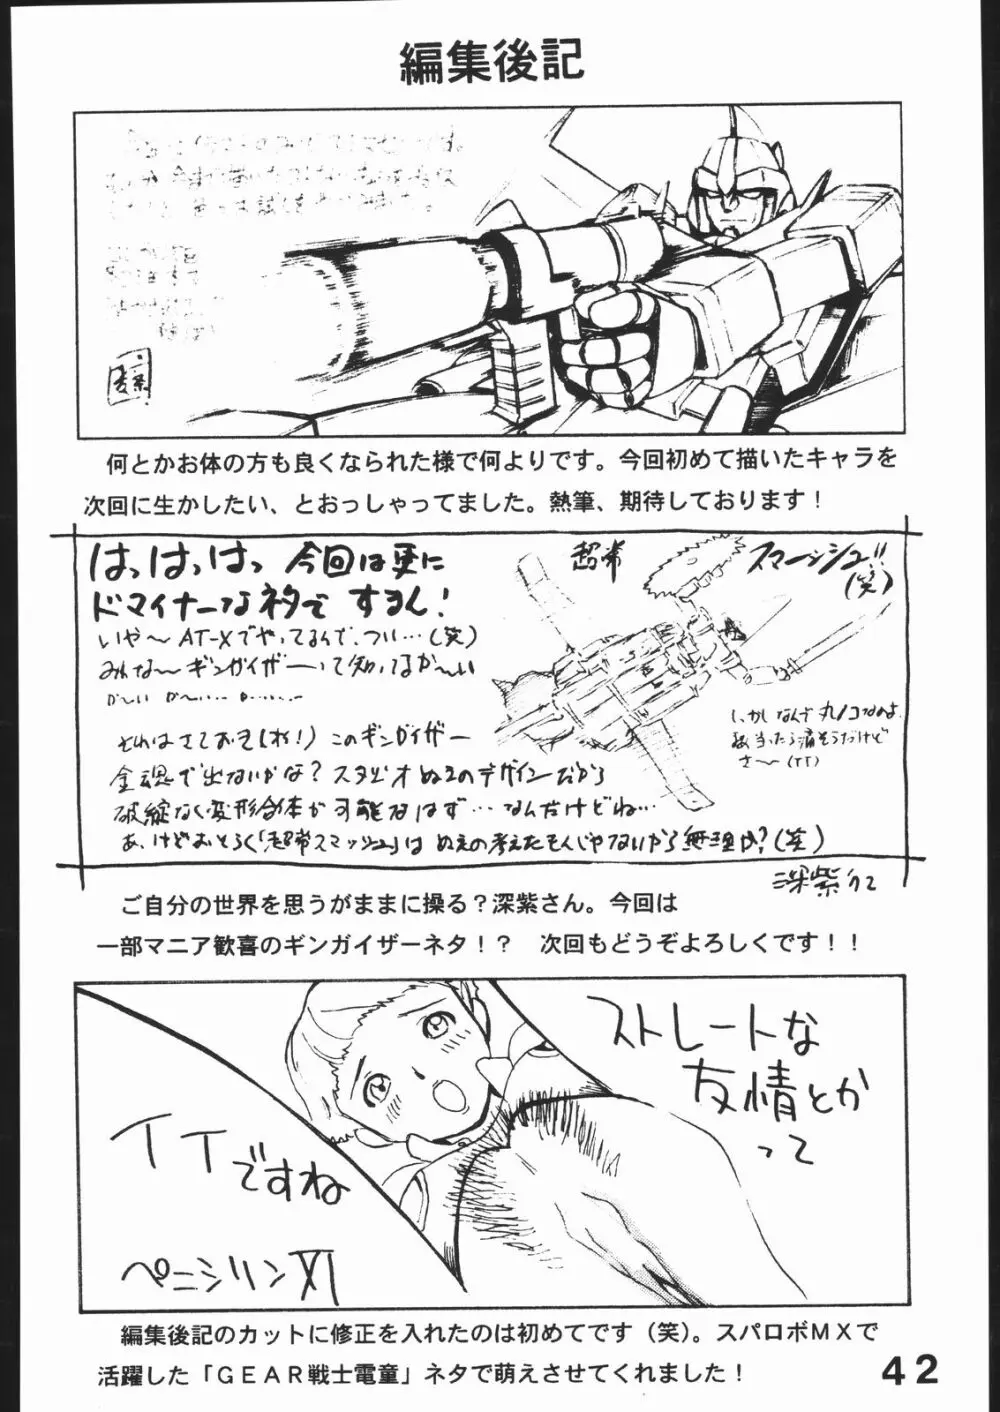 編集後記
何とかお体の方も良くなられた様で何よりです。今回初めて描いたキャラを
次回に生かしたい、とおっしゃってました。熱筆、期待しております！
はっはっはっ 今回は更に
ドマイナーなネタで するん！
いや〜 AT-Xでやってるんで、つい…(笑)
みんな〜ギンガイザーって知ってるか〜い
か〜い か〜い…
それはさておき(ね！) このギンガイザー
金魂で出ないかな？スタジオぬえのデザインだから
破綻なく変形合体が可能なはず…なんだけどね…
あ、けどおそらく「超常スマッシュ」は ぬえの考えたもんじゃないから無理か？(笑)
超常
スマーッシュ!!
(笑)
しかしなんで丸ノコなのよ
当たったら痛そうだけど
さ〜(TT)
深紫
ご自分の世界を思うがままに操る？深紫さん。今回は
一部マニア歓喜のギンガイザーネタ！？ 次回もどうぞよろしくです！！
ストレートな
友情とか
って
イイですね
ペニシリンXI
編集後記のカットに修正を入れたのは初めてです（笑）。スパロボＭＸで
活躍した「ＧＥＡＲ戦士電童」ネタで萌えさせてくれました！
42